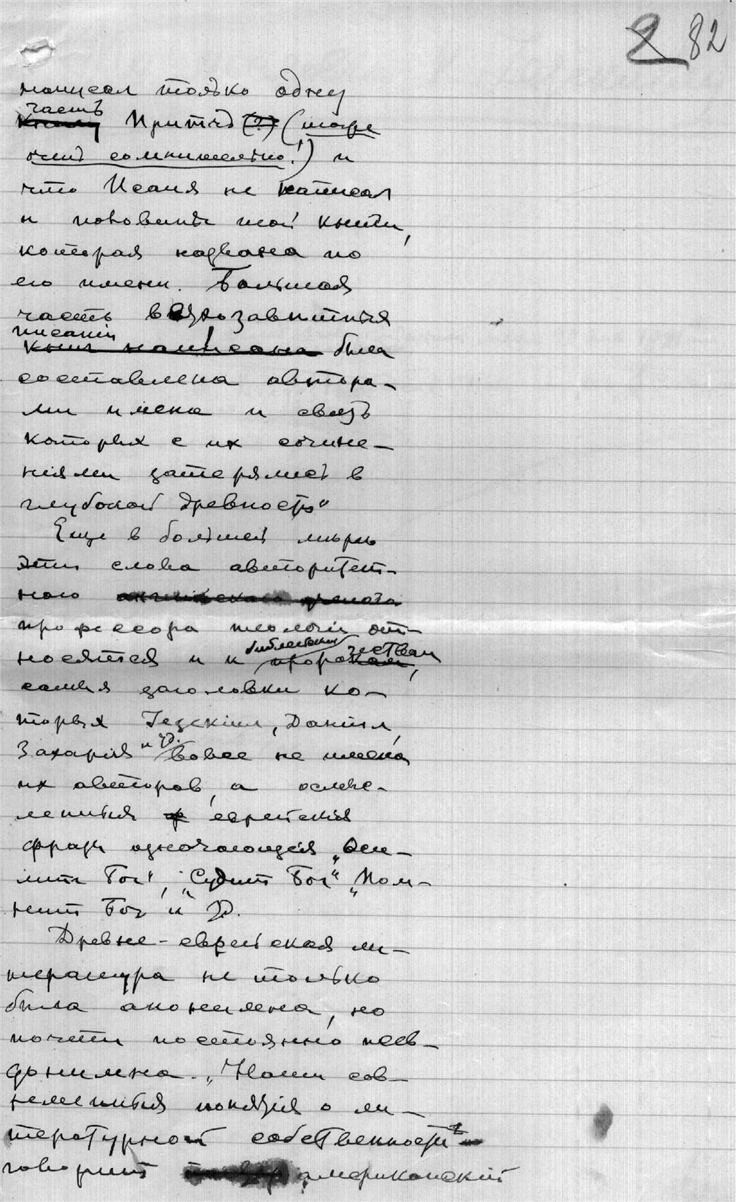 2 82
написал только одну
часть
книгу Притчъ (?) (тоже
очень сомнительно!) и
что Исаия не написал
и половины той книги,
которая названа по
его имени. Большая
часть ветхозавѣтныя
писаний
книг написана была
составлена автора-
ми имена и связь
которых с их сочине-
ниями затерялись в
глубокой древности"
Еще в большей мѣрѣ
эти слова авторитет-
ного английского
профессора теологии от-
носятся и к библейским
пророкам,
самыя заголовки ко-
торых Iезекiил, Данiил,
Захария и др. вовсе не имена
их авторов, а осмыс-
ленныя еврейскiя
фразы одночающiяся „Оси-
лит Бог", „Судит Бог" „Пом-
нит Бог" и др.
Древне-еврейская ли-
тература не только
была анонимна, но
почти постоянно псев-
донимна. „Наши сов-
ременныя понятiя о ли-
тературной собственности"
говорит американский